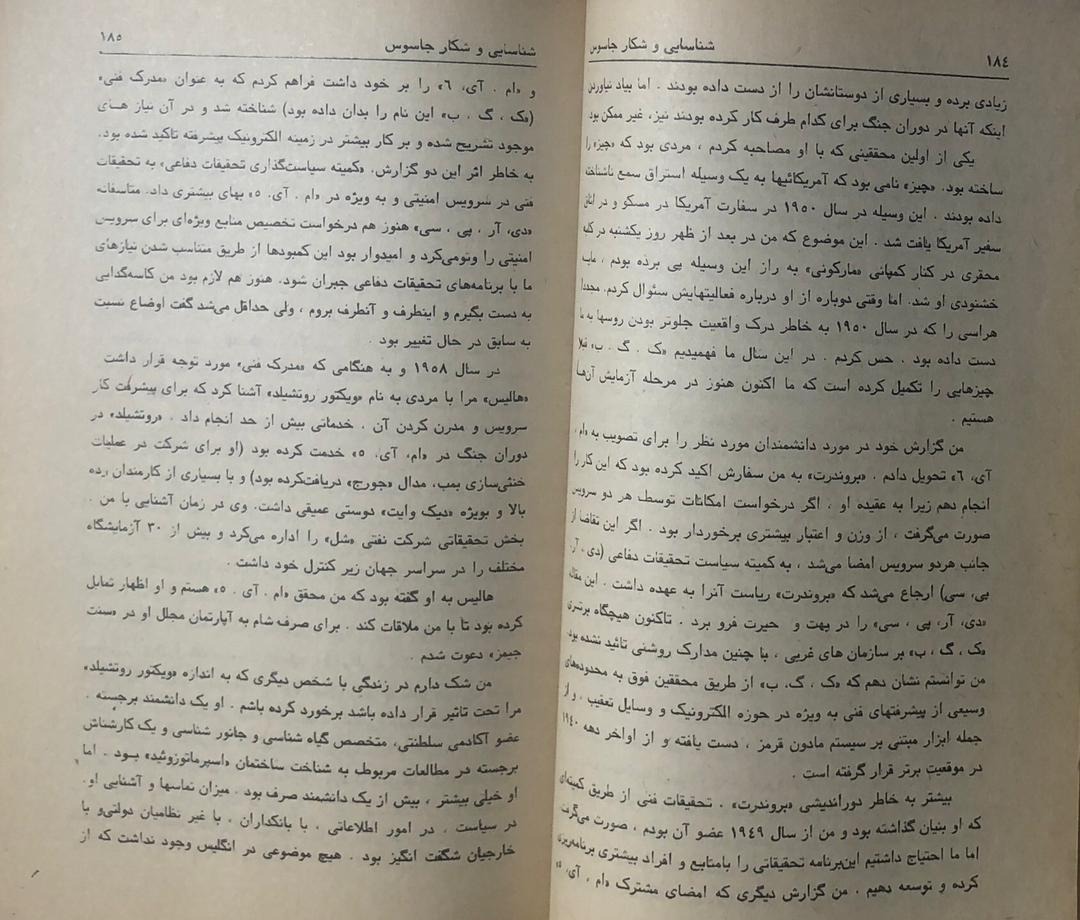 ۱۸۴
شناسایی و شکار جاسوس
زیادی برده و بسیاری از دوستانشان را از دست داده بودند . اما بیاد نیاوردن
اینکه آنها در دوران جنگ برای کدام طرف کار کرده بودند نیز، غیر ممکن بود
یکی از اولین محققینی که با او مصاحبه کردم ، مردی بود که «چیز» را
ساخته بود. «چیز» نامی بود که آمریکائیها به یک وسیله استراق سمع ناشناخته
داده بودند . این وسیله در سال ۱۹۵۰ در سفارت آمریکا در مسکو و در اتاق
سفیر آمریکا یافت شد . این موضوع که من در بعد از ظهر روز یکشنبه در کلبه
محقری در کنار کمپانی «مارکونی» به راز این وسیله پی برده بودم ، مایه
خشنودی او شد. اما وقتی دوباره از او درباره فعالیتهایش سئوال کردم. مجددا
هراسی را که در سال ۱۹۵۰ به خاطر درک واقعیت جلوتر بودن روسها به ما
دست داده بود . حس کردم . در این سال ما فهمیدیم «ک . گ . ب» قبلا
چیزهایی را تکمیل کرده است که ما اکنون هنوز در مرحله آزمایش آن‌ها
هستیم .
من گزارش خود در مورد دانشمندان مورد نظر را برای تصویب به «ام ،
آی، ۶» تحویل دادم . «بروندرت» به من سفارش اکید کرده بود که این کار را
انجام دهم زیرا به عقیده او ، اگر درخواست امکانات توسط هر دو سرویس
صورت می‌گرفت ، از وزن و اعتبار بیشتری برخوردار بود . اگر این تقاضا از
جانب هردو سرویس امضا می‌شد ، به کمیته سیاست تحقیقات دفاعی (دی ، آر،
پی، سی) ارجاع می‌شد که «بروندرت» ریاست آنرا به عهده داشت . این مقاله
«دی، آر، پی ، سی» را در بهت و حیرت فرو برد . تاکنون هیچگاه برتری
«ک ، گ ، ب» بر سازمان های غربی ، با چنین مدارک روشنی تائید نشده بود.
من توانستم نشان دهم که «ک ، گ، ب» از طریق محققین فوق به محدوده‌های
وسیعی از پیشرفتهای فنی به ویژه در حوزه الکترونیک و وسایل تعقیب ، و از
جمله ابزار مبتنی بر سیستم مادون قرمز ، دست یافته و از اواخر دهه ۱۹۴۰
در موقعیت برتر قرار گرفته است .
بیشتر به خاطر دوراندیشی «بروندرت» . تحقیقات فنی از طریق کمیته‌ای
که او بنیان گذاشته بود و من از سال ۱۹۴۹ عضو آن بودم ، صورت می‌گرفت
اما ما احتیاج داشتیم این‌برنامه تحقیقاتی را بامنابع و افراد بیشتری برنامه‌ریزی
کرده و توسعه دهیم . من گزارش دیگری که امضای مشترک «ام ، آی، ۵»
شناسایی و شکار جاسوس
۱۸۵
و «ام . آی، ۶» را بر خود داشت فراهم کردم که به عنوان «مدرک فنی»
(«ک ، گ . ب» این نام را بدان داده بود) شناخته شد و در آن نیاز هــای
موجود تشریح شده و بر کار بیشتر در زمینه الکترونیک پیشرفته تاکید شده بود.
به خاطر اثر این دو گزارش. «کمیته سیاست‌گذاری تحقیقات دفاعی» به تحقیقات
فنی در سرویس امنیتی و به ویژه در «ام . آی. ۵» بهای بیشتری داد. متاسفانه
«دی، آر ، پی ، سی» هنوز هم درخواست تخصیص منابع ویژه‌ای برای سرویس
امنیتی را وتومی‌کرد و امیدوار بود این کمبودها از طریق متناسب شدن نیازهای
ما با برنامه‌های تحقیقات دفاعی جبران شود. هنوز هم لازم بود من کاسه‌گدایی
به دست بگیرم و اینطرف و آنطرف بروم ، ولی حداقل می‌شد گفت اوضاع نسبت
به سابق در حال تغییر بود .
در سال ۱۹۵۸ و به هنگامی که «مدرک فنی» مورد توجه قرار داشت
«هالیس» مرا با مردی به نام «ویکتور روتشیلد» آشنا کرد که برای پیشرفت کار
سرویس و مدرن کردن آن . خدماتی بیش از حد انجام داد . «روتشیلد» در
دوران جنگ در «ام، آی، ۵» خدمت کرده بود (او برای شرکت در عملیات
خنثی‌سازی بمب، مدال «جورج» دریافت‌کرده بود) و با بسیاری از کارمندان رده
بالا و بویژه «دیک وایت» دوستی عمیقی داشت. وی در زمان آشنایی با من .
بخش تحقیقاتی شرکت نفتی «شل» را اداره می‌کرد و بیش از ۳۰ آزمایشگاه
مختلف را در سراسر جهان زیر کنترل خود داشت .
هالیس به او گفته بود که من محقق «ام . آی . ۵» هستم و او اظهار تمایل
کرده بود تا با من ملاقات کند . برای صرف شام به آپارتمان مجلل او در «سنت
جیمز» دعوت شدم .
من شک دارم در زندگی با شخص دیگری که به اندازه «ویکتور روتشیلد»
مرا تحت تاثیر قرار داده باشد برخورد کرده باشم . او یک دانشمند برجسته .
عضو آکادمی سلطنتی، متخصص گیاه شناسی و جانور شناسی و یک کارشناش
برجسته در مطالعات مربوط به شناخت ساختمان «اسپرماتوزوئید» بــود . اما
او خیلی بیشتر ، بیش از یک دانشمند صرف بود . میزان تماسها و آشنایی او.
در سیاست . در امور اطلاعاتی ، با بانکداران . با غیر نظامیان دولتی‌و با
خارجیان شگفت انگیز بود . هیچ موضوعی در انگلیس وجود نداشت که از